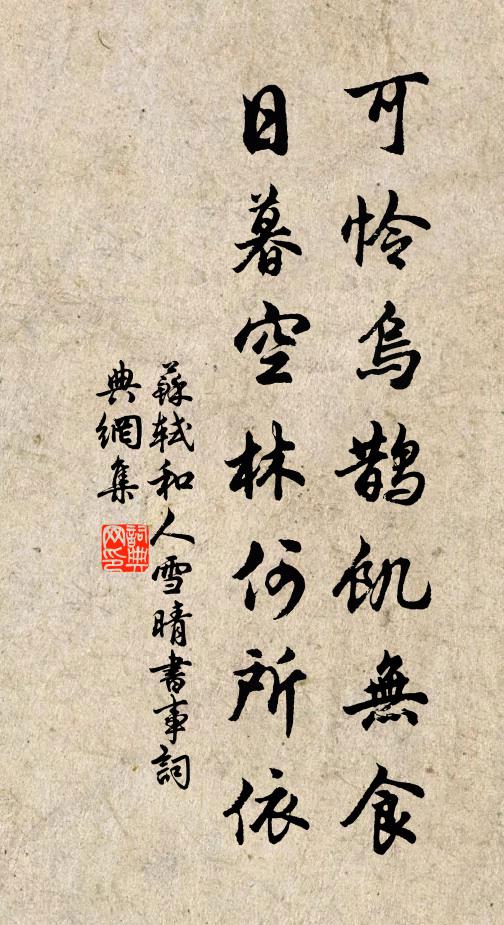 可怜烏鵲飢無食
日暮空林何所依
蘇軾和人雪晴書事詞
典網集
詞典
网印